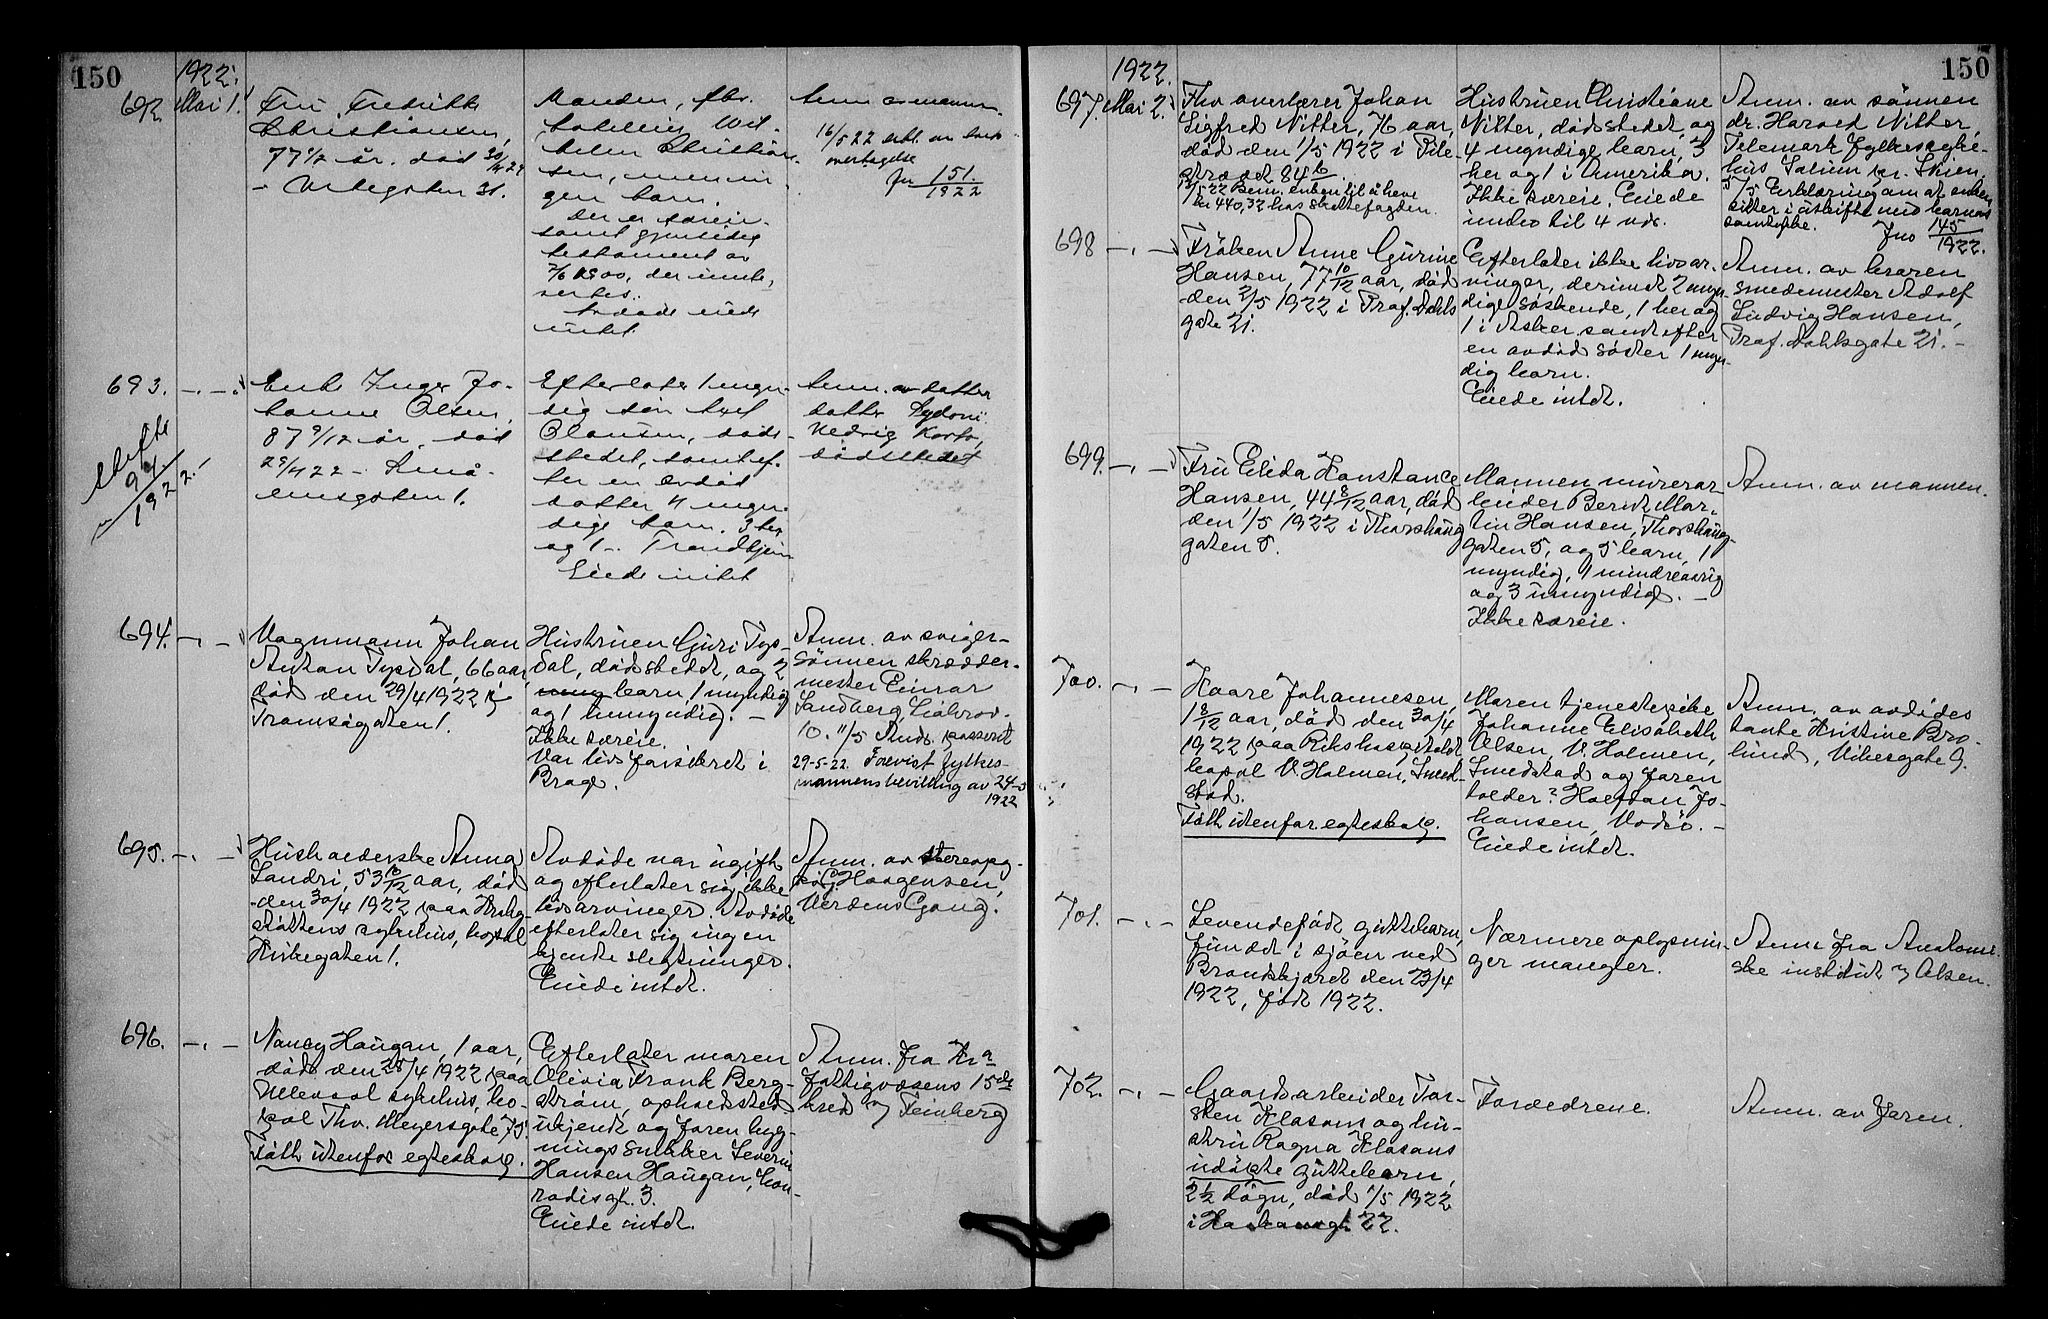 150
1922.
692 Mai 1.
Fru Fredrikke
Christiansen,
77 1/2 år, død 30/4 22
- Urtegaten 31.
Manden, fhv.
Wil-
helm Christian-
sen, men in-
gen barn.
Der er særeie
samt gjensidig
testament av
7/6 1900, der
Avdøde eiede
intet.
Anm. av mannen.
16/5 22 erkl. om
overtagelse
Jno 151/1922
693. -"-
Skifte
94/1922.
Enke Inger Jo-
hanne Olsen,
87 9/12 år, død
29/4 22 - Små-
lensgaten 1.
Efterlater 1 myn-
dig søn
Olausen, døds-
stedet, samt ef-
ter en avdød
datter 4 myn-
dige barn, 3 her
og 1 i Trondhjem
Eiede intet
Anm. av datter
datter
Hedvig
dødsstedet
694. -"-
Vognmann Johan
Anton Tysdal, 66 aar,
død den 29/4 1922 i
Tromsøgaten 1.
Hustruen Guri Tys-
dal, dødsstedet, og 2
barn 1 myndig
og 1 umyndig. -
Ikke særeie.
Var livsforsikret i
Brage.
Anm. av sviger-
sønnen skrædder-
mester Einar
Sandberg,
10. 11/5 Ands. passert
29-5-22. Forevist fylkes-
mannens bevilling av 24-5
1922
695. -"-
Husholderske Anna
Sandri, 53 10/12 aar, død
den 30/4 1922 paa Krohg-
støttens sykehus, bopæl
Kirkegaten 1.
Avdøde var ugift
og efterlater sig ikke
livsarvinger. Avdøde
efterlater sig ingen
kjendte slegtninger.
Eiede intet.
Anm. av
Haagensen,
Verdens Gang.
696. -"-
Nancy Haugan, 1 aar,
død den 28/4 1922 paa
Ullevaal sykehus, bo-
pæl Thv. Meyersgate 75.
Født utenfor egteskap.
Efterlater moren
Olivia Frank Berg-
strøm, opholdssted
ukjendt og faren byg-
ningssnikker Severin
Hansen Haugan,
gt. 3.
Eiede intet.
Anm. fra Kra
fattigvæsens 15de
kred v/ Feinberg
150
1922.
697. Mai 2.
Fhv overlærer Johan
Sigfred Nitter, 76 aar,
død den 1/5 1922 i Pile-
strædet 84 b.
13/5 22 Bem. enken til å heve
kr 440,32 hos skattefogden.
Hustruen Christiane
Nitter, dødsstedet, og
4 myndige barn, 3
her og 1 i Amerika.
Ikke særeie. Eiede
indtil 4 tus.
Anm. av sønnen
dr. Harald Nitter,
Telemark fylkessyke-
hus Solum pr. Skien.
5/5 Erklæring om at enken
sitter i uskifte med barnas
samtykke. Jno 145/1922.
698 -"-
Frøken Anne Gurine
Hansen, 77 10/12 aar, død
den 2/5 1922 i Prof. Dahls
gate 21.
Efterlater ikke livsar-
vinger, derimot 2 myn-
dige søskende, 1 her og
1 i Asker samt efter
en avdød søster 1 myn-
dig barn.
Eiede intet.
Anm. av broren
smedemester Adolf
Ludvig Hansen,
Prof. Dahlsgate 21. -
699. -"-
Fru Elida Konstance
Hansen, 44 8/12 aar, død
den 1/5 1922 i Thorshaug
gaten 5.
Mannen murerar-
beider Bernt Mar-
tin Hansen, Thorshaug-
gaten 5, og 5 barn, 1
myndig, 1 mindreaarig
og 3 umyndige. -
Ikke særeie.
Anm. av mannen.
700. -"-
Kaare Johannesen,
1 8/12 aar, død den 30/4
1922 paa Rikshospitalet
bopæl V. Holmen, Smed-
stad.
Født utenfor egteskap.
Moren tjenestepike
Johanne Elisabeth
Olsen, V. Holmen,
Smedstad og faren
tolder? Halfdan Jo-
hansen, Vadsø. -
Eiede intet.
Anm. av avdødes
tante Kristine Bro-
lund, Vibesgate 9.
701. -"-
Levendefødt guttebarn,
fundet i sjøen ved
Branskjæret den 23/4
1922, født 1922.
Nærmere oplysnin-
ger mangler.
Anm. fra Anatomi-
ske institut v/ Olsen.
702. -"-
Gaardsarbeider Tor-
sten Klasons og hu-
stru Ragna Klasons
udøpte guttebarn,
2 1/2 døgn, død 1/5 1922
i gt. 22.
Forældrene.
Anm. av faren.